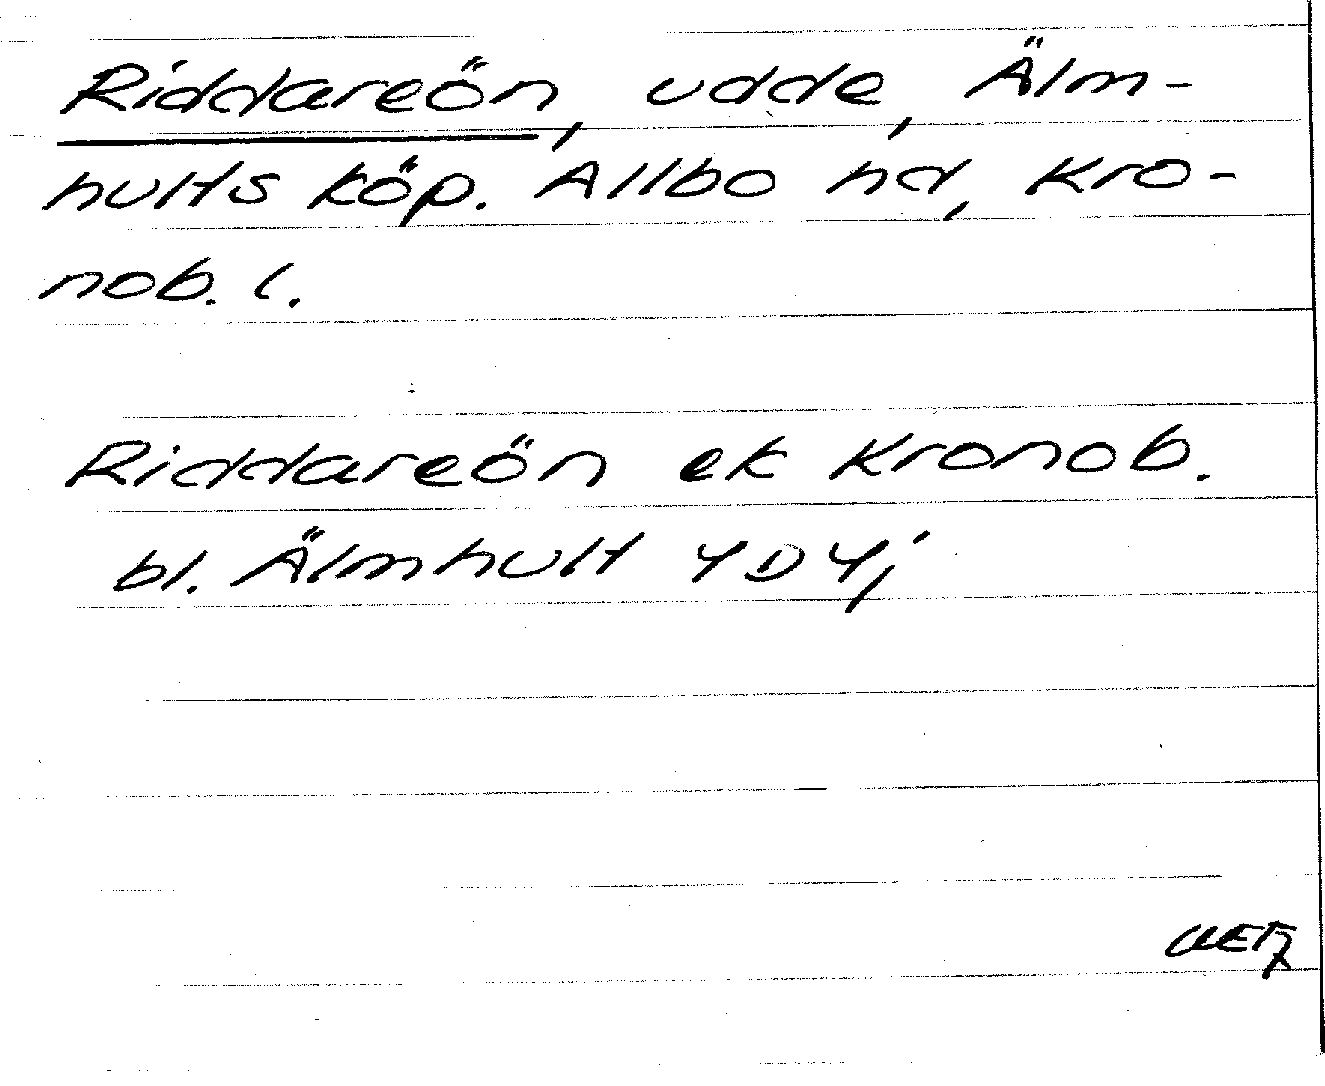 Riddareön, udde, Älm-
hults köp. Allbo hd, Kro-
nob. l.
Riddareön ek Kronob.
bl. Älmhult 4D4;